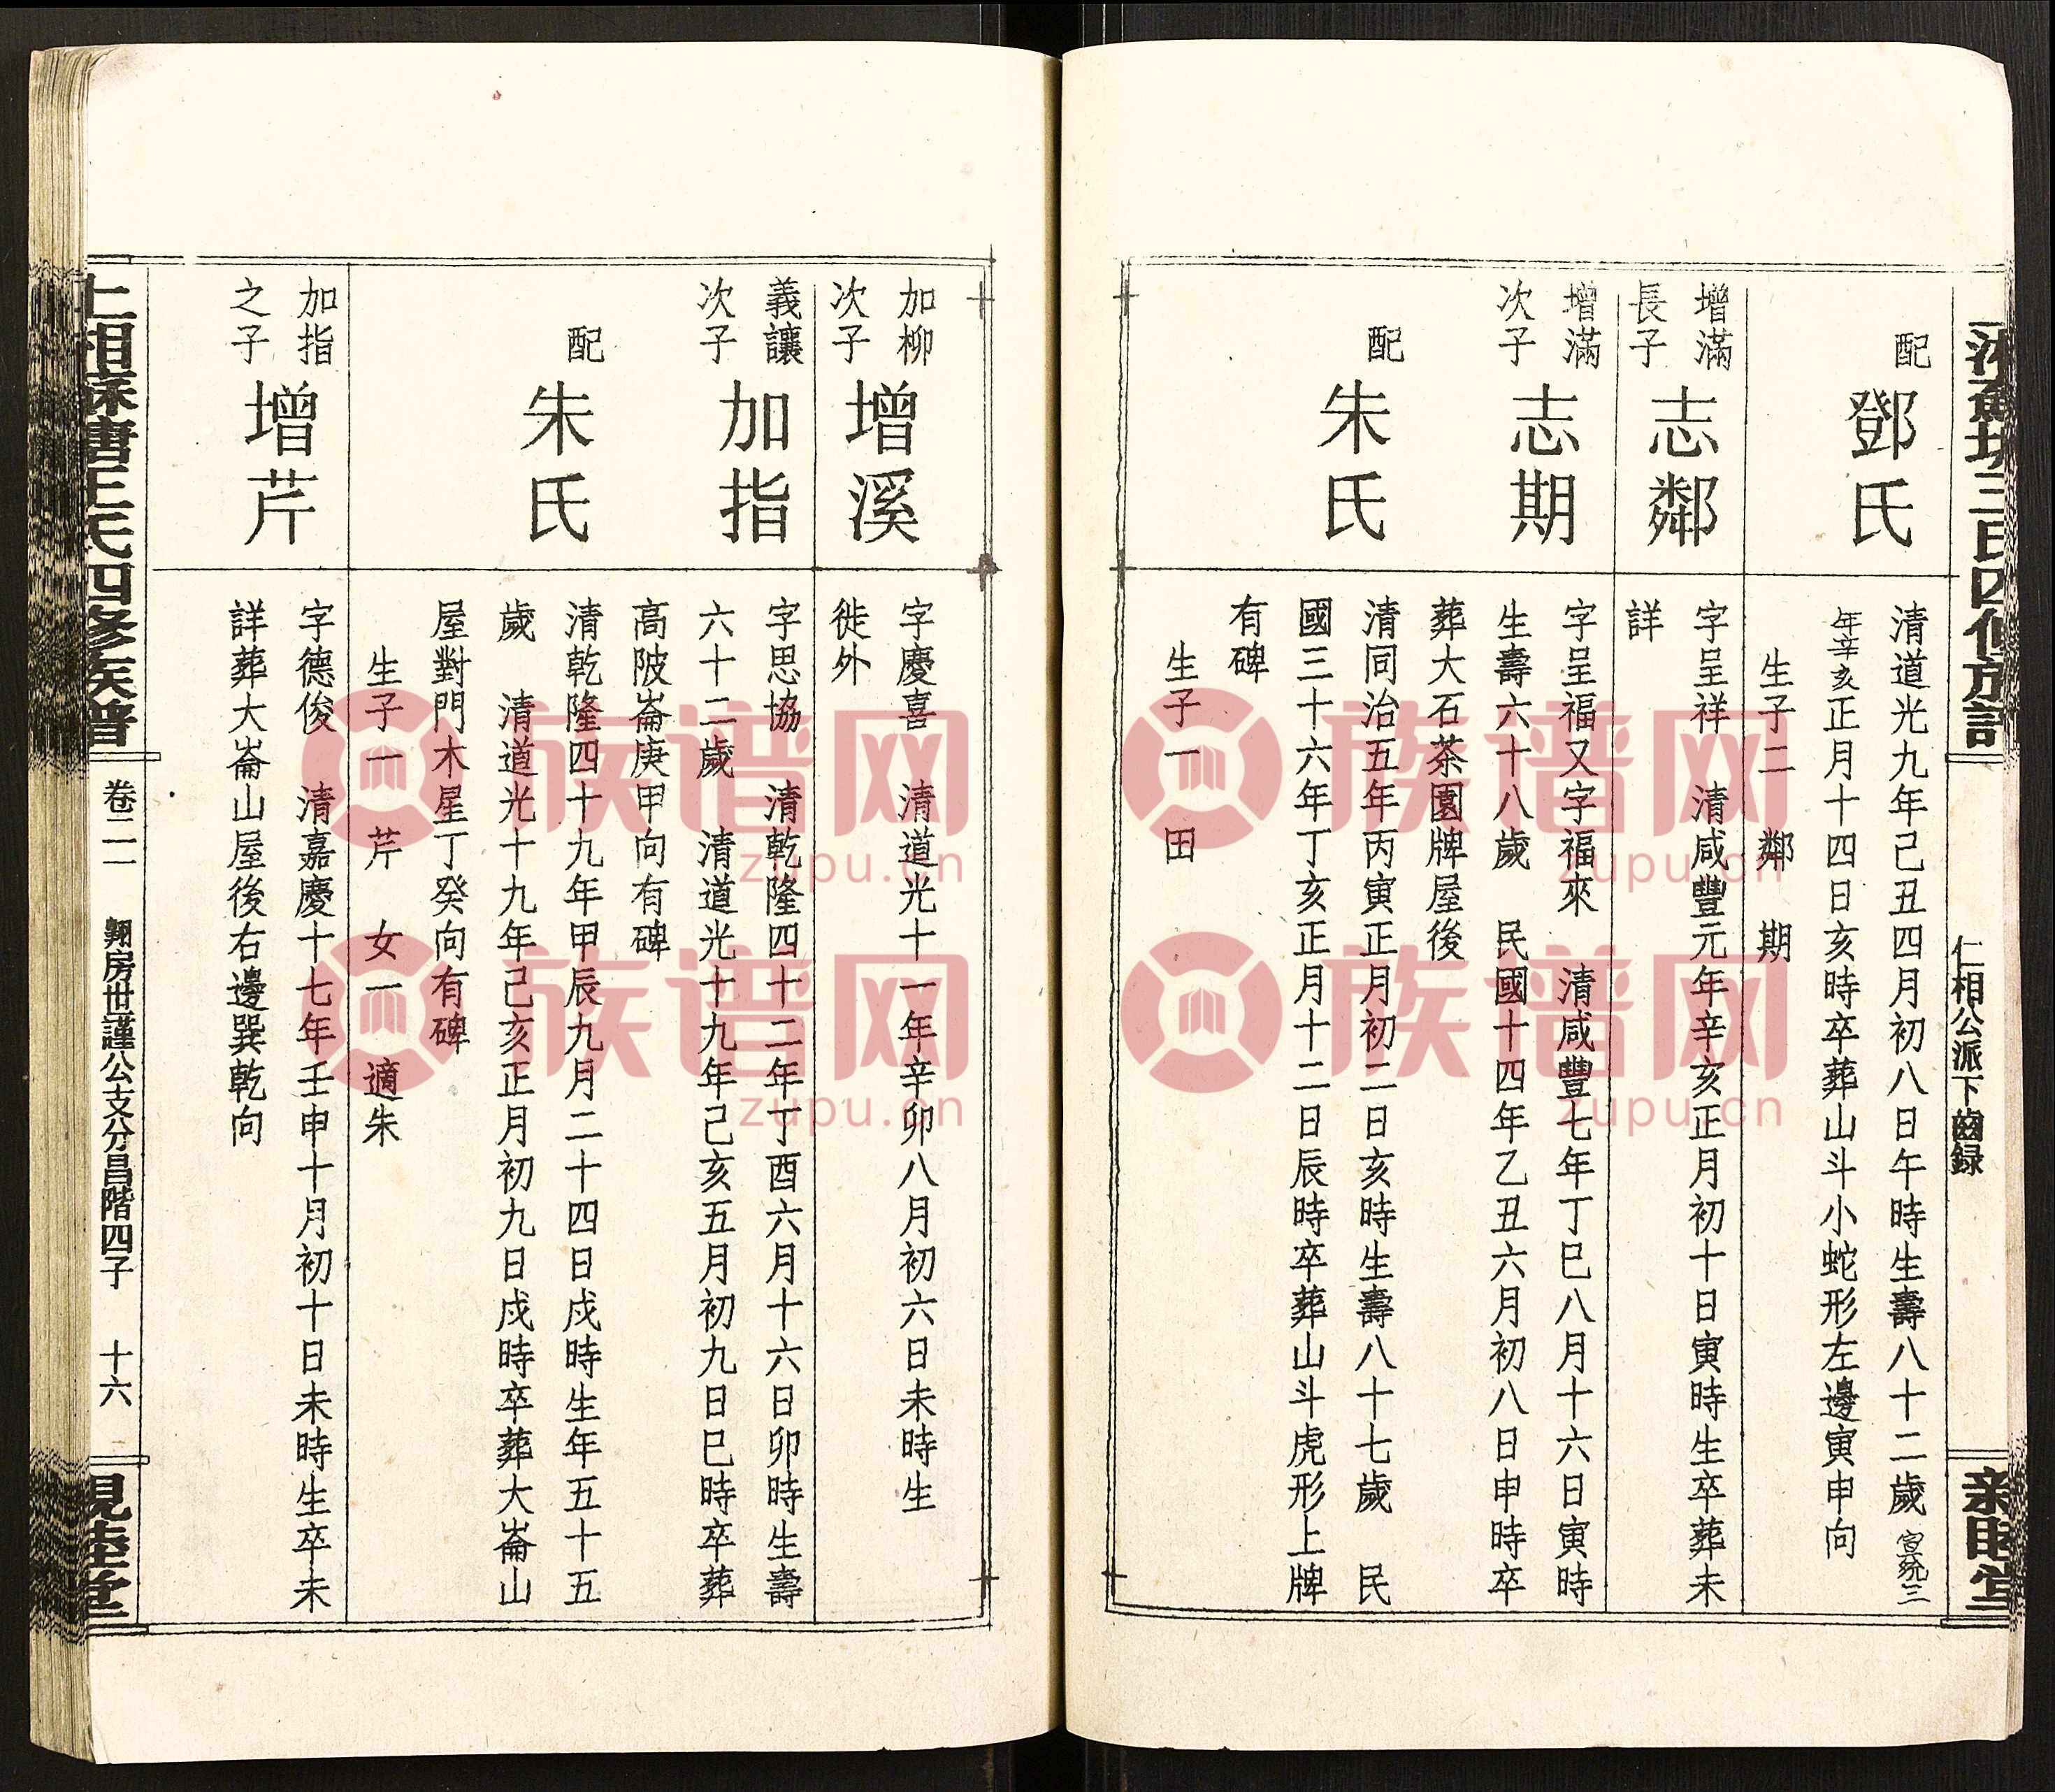 仁相公派下齒録
配
鄧氏
清道光九年己丑四月初八日午時生壽八十二歲宣統三
年辛亥正月十四日亥時卒葬山斗小蛇形左邊寅申向
生子二 鄰 期
增滿
長子
志鄰
字呈祥 清咸豐元年辛亥正月初十日寅時生卒葬未
詳
增滿
次子
志期
字呈福又字福來 清咸豐七年丁巳八月十六日寅時
生壽六十八歲 民國十四年乙丑六月初八日申時卒
葬大石茶園牌屋後
配
朱氏
清同治五年丙寅正月初二日亥時生壽八十七歲 民
國三十六年丁亥正月十二日辰時卒葬山斗虎形上牌
有碑
生子一 田
加柳
次子
增溪
字慶喜 清道光十一年辛卯八月初六日未時生
徙外
義讓
次子
加指
字思協 清乾隆四十二年丁酉六月十六日卯時生壽
六十二歲 清道光十九年己亥五月初九日巳時卒葬
高陂崙庚甲向有碑
配
朱氏
清乾隆四十九年甲辰九月二十四日戌時生年五十五
歲 清道光十九年己亥正月初九日戌時卒葬大崙山
屋對門木星丁癸向有碑
生子一 芹 女一 適朱
加指
之子
增芹
字德俊 清嘉慶十七年壬申十月初十日未時生卒未
詳葬大崙山屋後右邊巽乾向
王氏四修族譜
卷二一 翔房世謹公支分昌階四子 十六
族谱网
zupu.cn
族谱网
zupu.cn
族谱网
zupu.cn
族谱网
zupu.cn